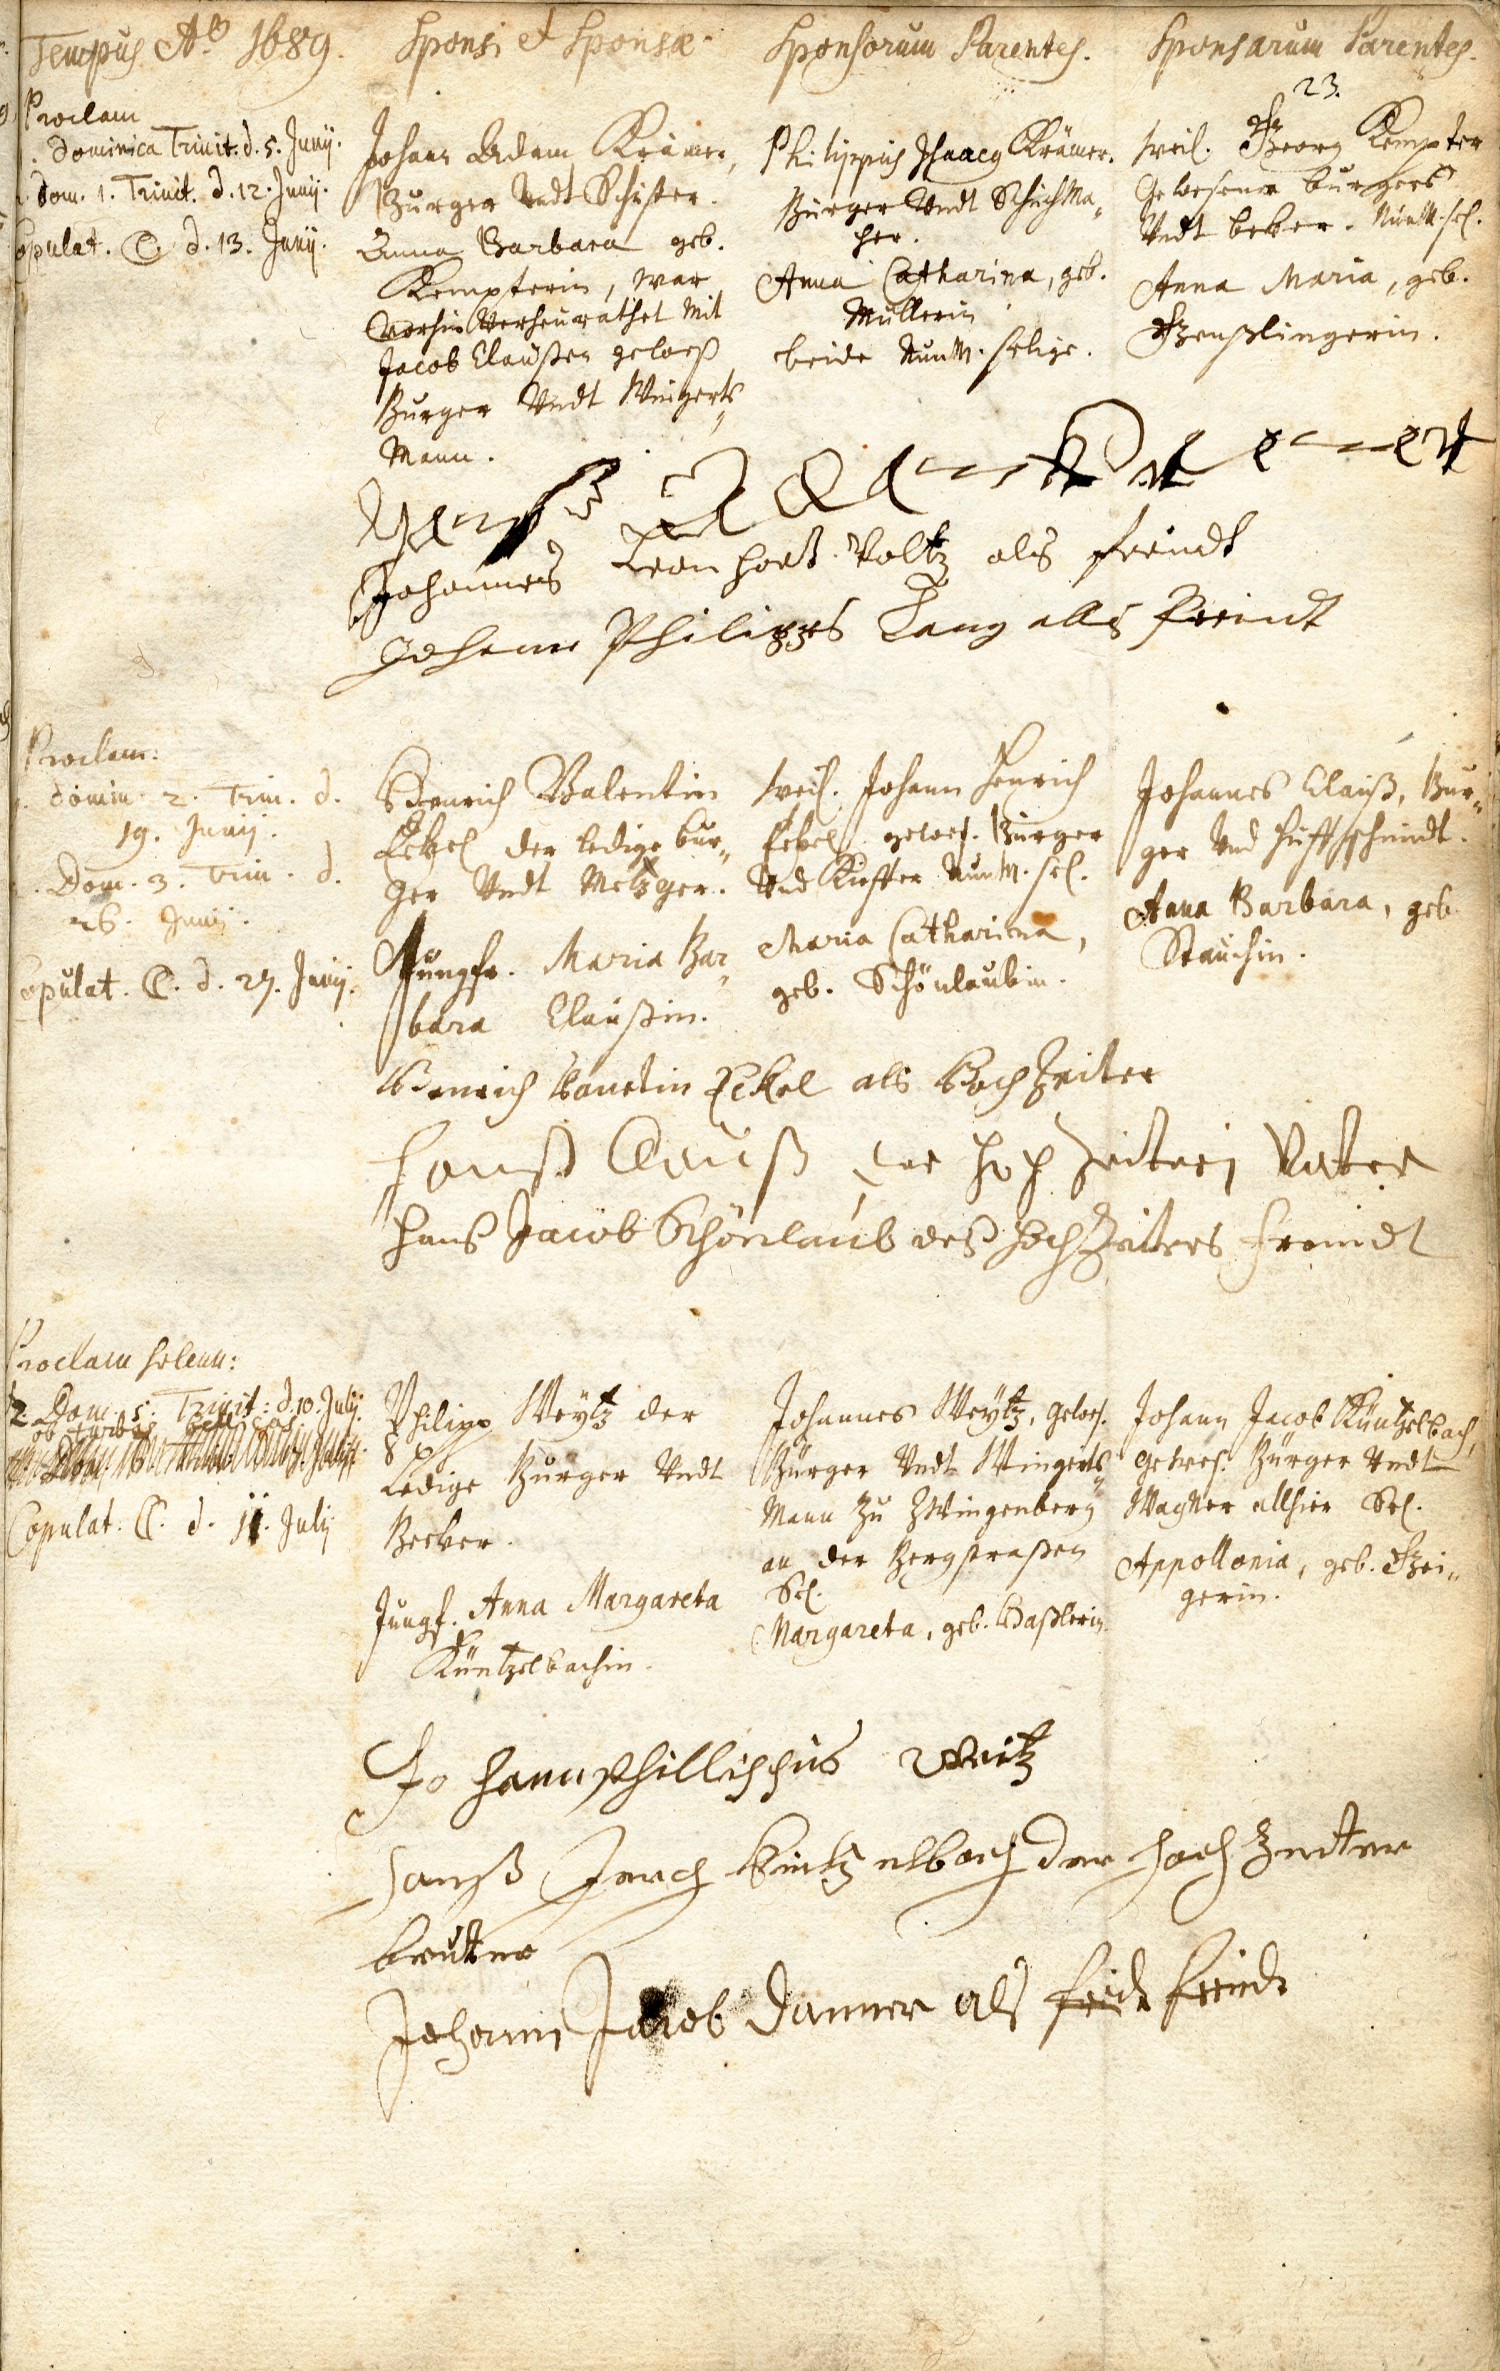 Tempus Ao 1689. Sponsi et Sponsæ. Sponsorum Parentes. Sponsarum Parentes.
23.
Proclam
Dominica Trinit. d. 5. Junij.
Dom. 1. Trinit. d. 12. Junij.
Copulat. C. d. 13. Junij.
Johann Adam Krämer,
Burger Undt Schister.
Anna Barbara geb.
Kempterin, war
Vorhin Verheurathet Mit
Jacob Claußen geweß
Burger Undt Wingerts
Mann.
Philippus Isaacq Krämer.
Burger Undt SchuhMa„
cher.
Anna Catharina, geb.
Müllerin
beide NunM. selige.
weil. Georg Kempter
Gewesener burgers
Undt beker. NunM. sel.
Anna Maria, geb.
Genßlingerin.
Johannes Leonhart Voltz als freindt
Johann Philipps Lang alls Freindt
Proclam:
domin. 2. Trin. d.
19. Junij.
Dom. 3. Trin. d.
26. Junij
Copulat. C. d. 27. Junij.
Henrich Valentin
Eckel der ledige bur„
ger Undt Metzger.
Jungfr. Maria Bar„
bara Claußin.
weil. Johann Henrich
Eckel gewes. Burger
Und Kieffer NunM. sel.
Maria Catharina,
geb. Schönlaubin.
Johannes Clauß, Bur„
ger Und huffschmidt.
Anna Barbara, geb.
Stauchin.
Henrich Vaneltin Eckel als HochZeiter
Hanß Clauß der HochZeiterin Vater
Hanß Jacob Schönlaub deß HochZeiters freindt
Proclam solenn:
2 Dom. 5. Trinit: d. 10. Julij.
ob turbas bellicas
Copulat. C. d. 11. Julij
Philipp Weytz der
Ledige Burger Undt
Becker.
Jungf. Anna Margareta
Küntzelbachin.
Johannes Weytz, gewes.
Bürger Undt Wingerts„
Mann Zu Zwingenberg
an der Bergstraßen
Sel.
Margareta, geb. Haßlerin.
Johann Jacob Küntzelbach,
gewes. Bürger Undt
Wagner allhier Sel.
Appollonia, geb. Gei„
gerin.
Johann Phillippus Weitz
Hanß Jerch Kintzelbach der HochZeiter
bruter
Johann Jacob Danner als freindt